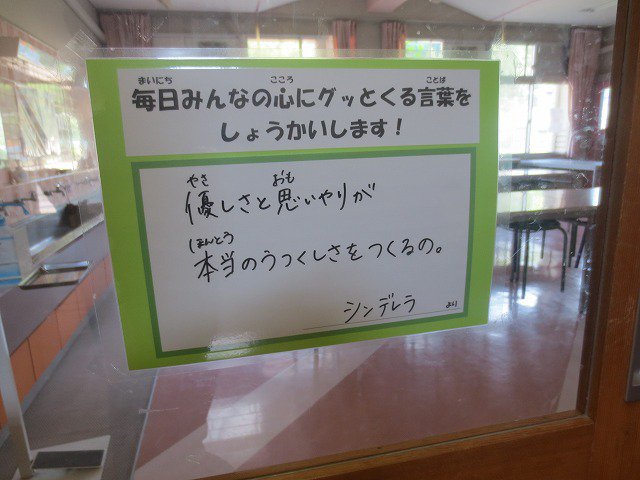 まいにち こころ ことば
毎日みんなの心にグッとくる言葉を
しょうかいします！
やさ おも
優しさと思いやりが
ほんとう
本当のうつくしさをつくるの。
シンデレラ より